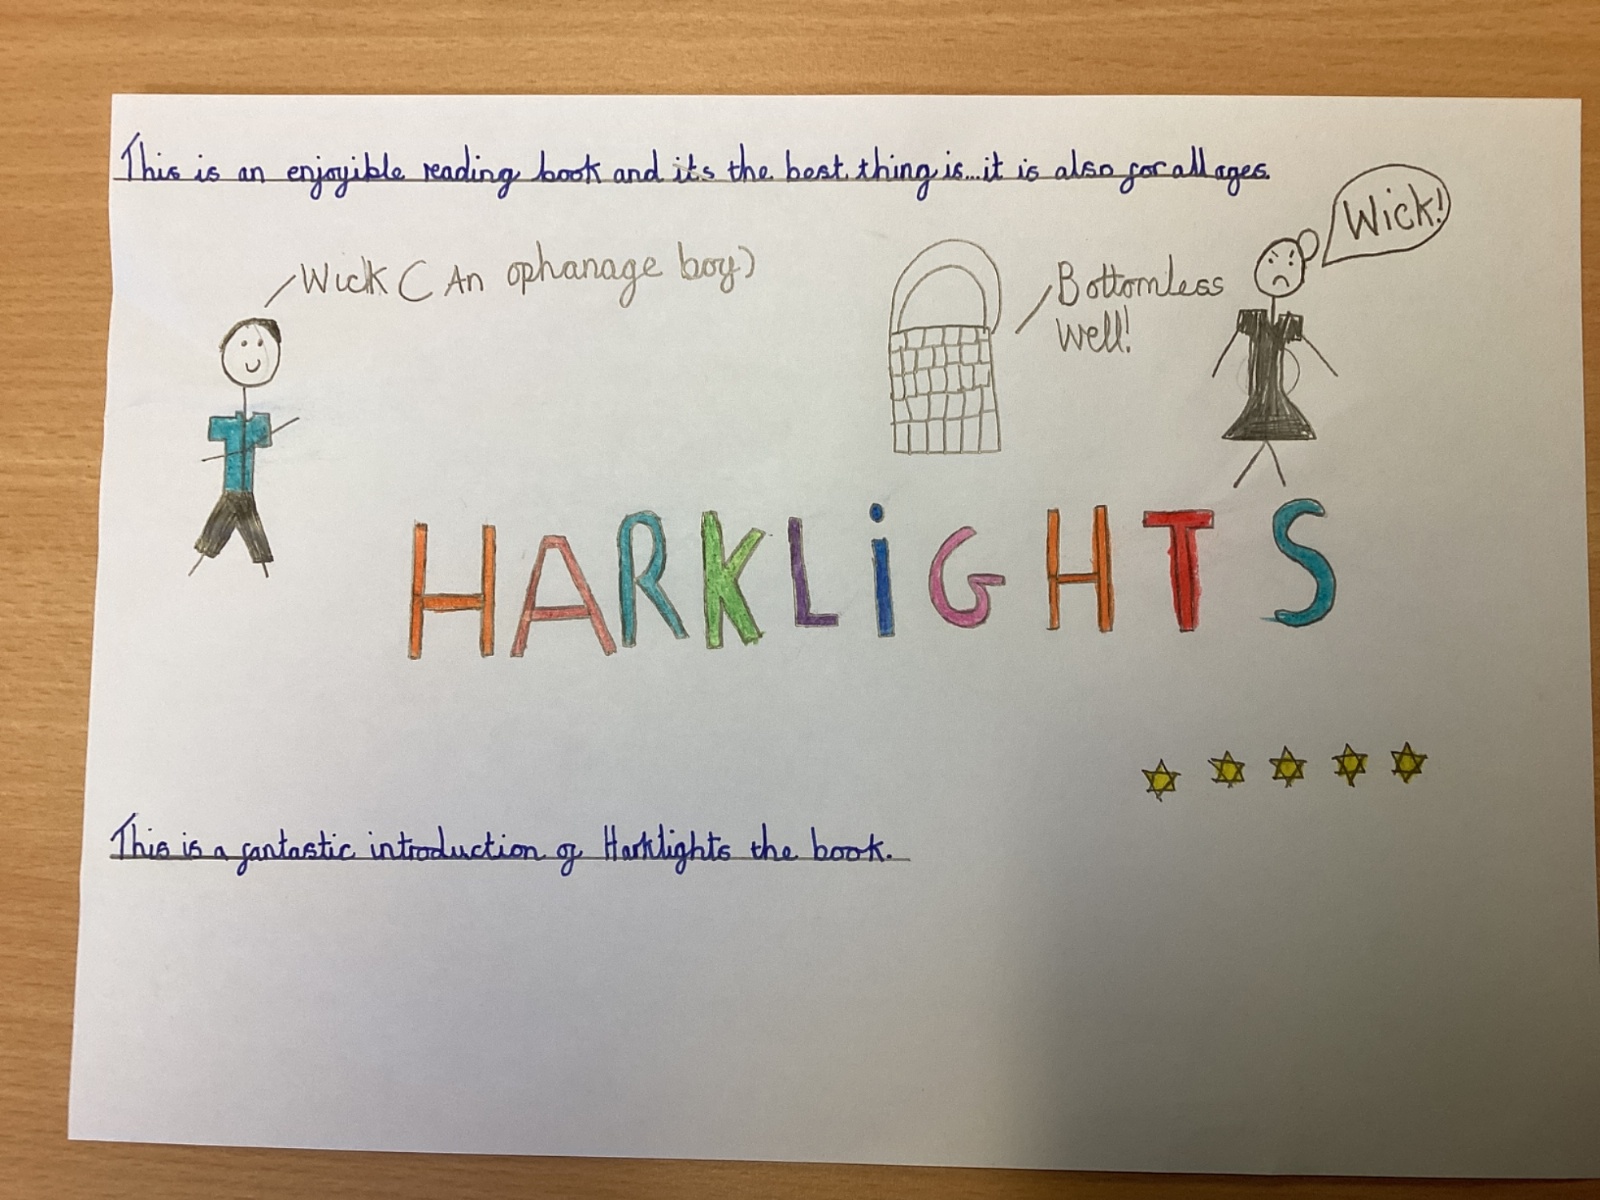 This is an enjoyible reading book and its the best thing is...it is also for all ages.
Wick!
Wick ( An ophanage boy)
Bottomless
Well!
HARKLiGHTS
This is a fantastic introduction of Harklights the book.